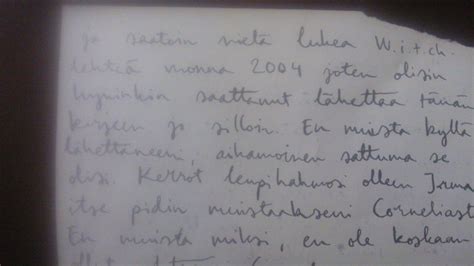 ja saatoin vielä lukea W.i.t.ch.
lehteä vuonna 2004 joten olisin
hyvinkin saattanut lähettää tämän
kirjeen jo silloin. En muista kyllä
lähettäneeni, aikamoinen sattuma se
olisi. Kerrot lempihahmosi olleen Irma
itse pidin muistaakseni Corneliast
En muista miksi, en ole koskaan